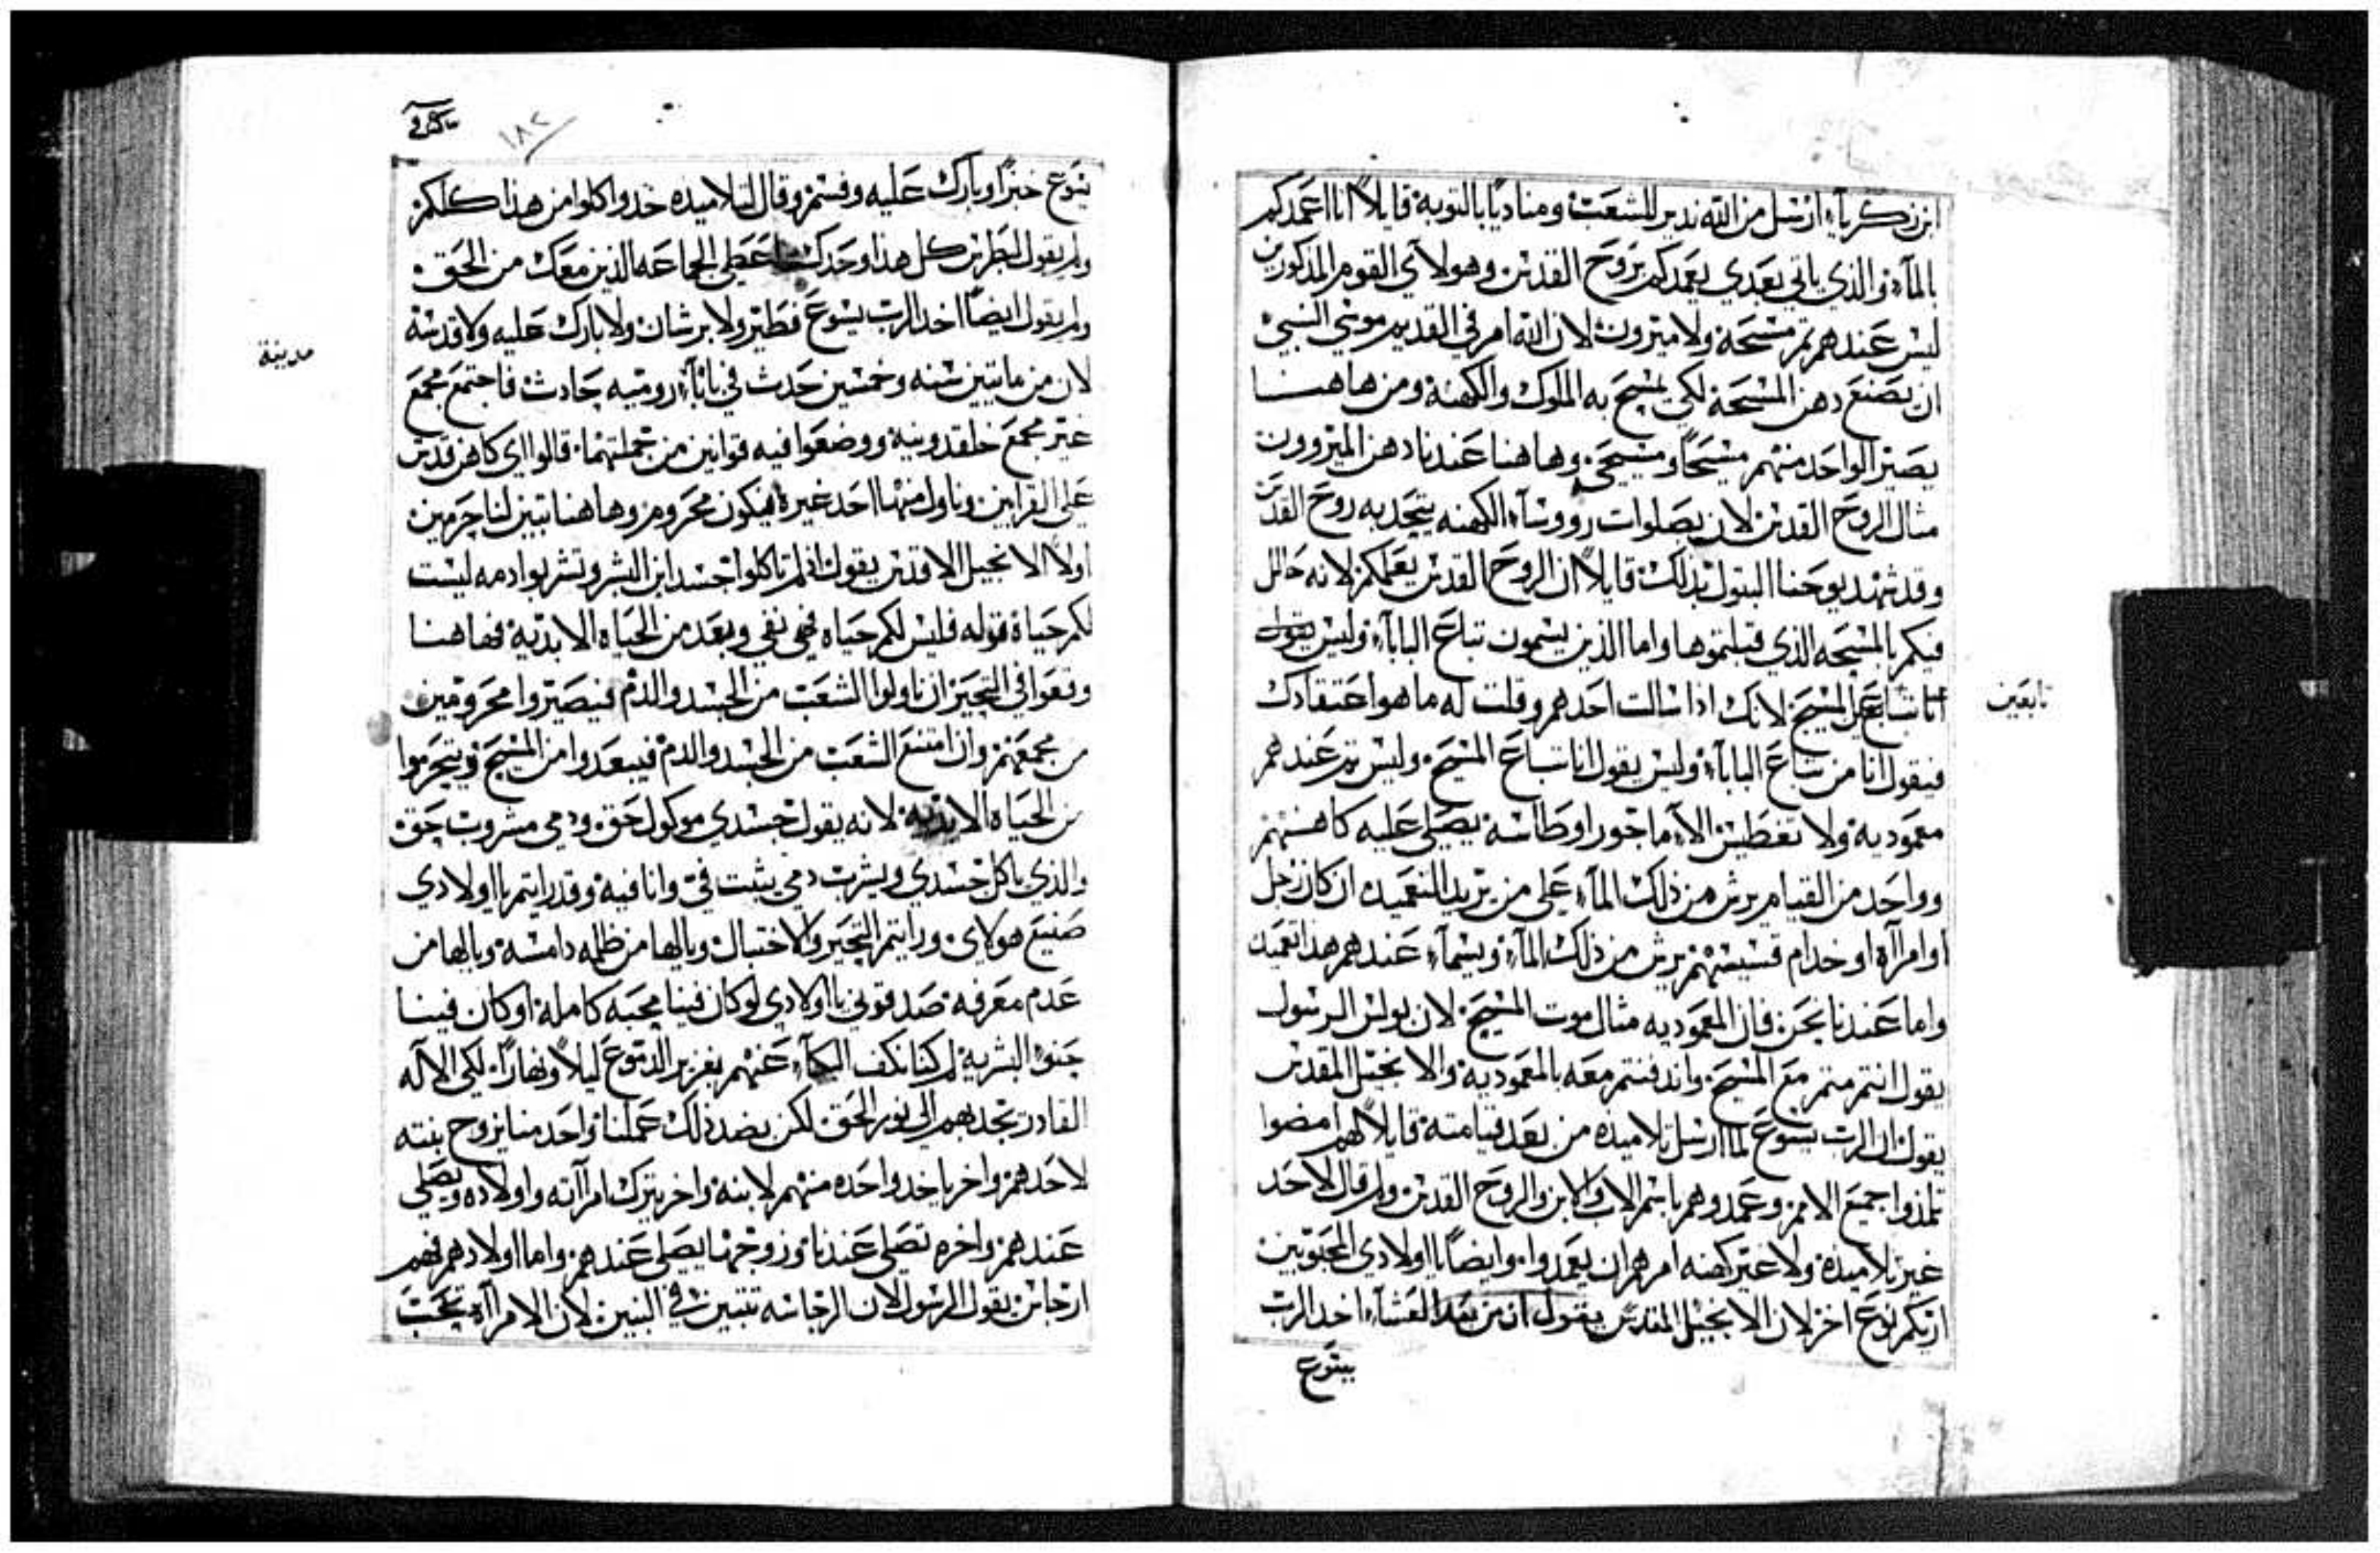 ابن زكرياء ارسل من الله ندير للشعب ومناديًا بالتوبه قايلاً انا اعمدكم
بالماء والذي ياتي بعدي يعمدكم بروح القدس وهولاي القوم المذكورين
ليس عندهم تم مسحة ولا ميرون لان الله امر في القديم موسي النبي
ان يصنع دهن المسحة لكي يمسح به الملوك والكهنة ومن هاهنا
يصير الواحد منهم مسيحًا ومسيحي وهاهنا عندنا دهن الميرون
مثال الروح القدس لان بصلوات رووساء الكهنه يتحد به روح القدس
وقد شهد يوحنا البتول بدلك قايلاً ان الروح القدس يعلمكم لانه حالل
فيكم بالمسحه الذي قبلتموها واما الذين يسمون تباع البابا وليس يقول
انا تباع المسيح لانك اذا سالت احدهم وقلت له ما هو اعتقادك
فيقول انا من تباع البابا وليس يقول انا تباع المسيح وليس تم عندهم
معموديه ولا تغطيس الا ماجور او طاسه يصلي عليه كاهنهم
وواحد من القيام يرش من ذلك الماء علي من يريد التعميد ان كان رجل
او امرآه او خدام قسيسهم يرش من ذلك الماء ويسماء عندهم هدا تعميد
واما عندنا نحن فان المعموديه مثال موت المسيح لان بولس الرسول
يقول انتم متم مع المسيح واندفنتم معه بالمعموديه والانجيل المقدس
يقول ان الرب يسوع لما ارسل تلاميده من بعد قيامته قايلاً لهم امضوا
تلمذوا جميع الامم وعمدوهم باسم الاب والابن والروح القدس ولم قال لاحد
غير تلاميده ولا غير كهنه امرهم ان يعمدوا وايضًا يا اولادي المحبوبين
اريكم نوع اخر لان الانجيل المقدس يقول ان من بعد العشاء اخد الرب
يسوع
تابعين
١٨٢
يسوع خبزًا وبارك عليه وقسم وقال لتلاميده خدوا كلوا من هذا كلكم
ولم يقول لبطرس كل هذا وحدك اعطي الجماعه الذين معك من الحق
ولم يقول ايضًا اخد الرب يسوع فطير ولا برشان ولا بارك عليه ولا قدسه
لان من مايتين سنه وخمسين حدث في باباء روميه حادث فاجتمع مجمع
غير مجمع خلقدونية ووضعوا فيه قوانين من جملتهما قالوا اي كاهن قدس
علي القرابين وناول منها احد غيره فيكون محروم وهاهنا تبين لنا جرمين
اولاً الانجيل الاقدس يقول ان لم تاكلوا جسد ابن البشر وتشربوا دمه ليست
لكم حياة قوله فليس لكم حياه فهي نفي وبعد من الحياه الابديه فهاهنا
وقعوا في التحير ان ناولوا الشعب من الجسد والدم فيصيروا محرومين
من مجمعهم وان امتنع الشعب من الجسد والدم فيبعدوا من المسيح ويتحرموا
من الحياه الابديه لانه يقول جسدي موكول حق ودمي مشروب حق
والذي ياكل جسدي ويشرب دمي يثبت في وانا فيه وقد رايتم يا اولادي
صنيع هولاي ورايتم التحير والاختبال ويالها من ظلمه دامسه ويالها من
عدم معرفه صدقوني يا اولادي لو كان فينا محبه كامله او كان فينا
حنو البشريه لم كنا نكف البكاء عنهم بغزير الدموع ليلاً ونهارًا لكي الاله
القادر يجدبهم الي نور الحق لكن بضد ذلك عملنا واحد منا يزوج بنته
لاحدهم واخر ياخد واحده منهم لابنه واخر يترك امرآته واولاده ويصلي
عندهم واخره تصلي عندنا وزوجها يصلي عندهم واما اولادهم فهم
ارجاس يقول الرسول لان الرجاسه تتبين في البنين لان الامرآه تحت
مدينة